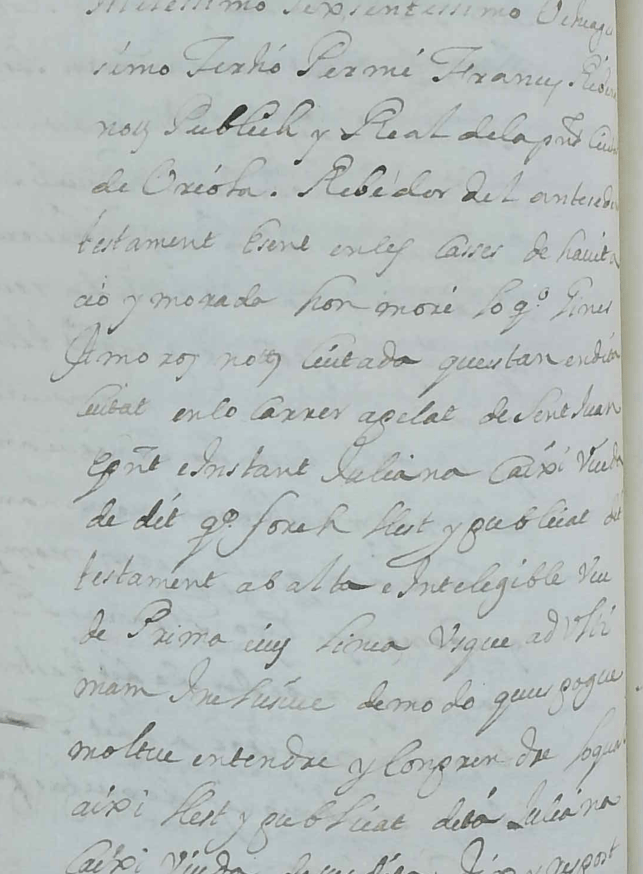 Millessimo sexsentessimo Vehinge
simo Terhió Permé Franc͂y
noty Publich y Real dela pñt Ciu
de Orióla. Rebédor del antesed
testament Esent enles Casses de havita
ció y morada hon moré lo qº. Gines
noty Ciutada questan endita
Ciutat enlo Carrer apelat de Sent Juan
Epñt e Instant Juliana Caixi Viuda
de dit qº. foreh llest y publicat dit
testament ab alta e Inteligible Veu
de Prima eius linea, Usque ad Ulti
mam Inclusiue demodo queu pogue
moltue entendre y Conpren dre loqual
aixi llest y publicat dita Juliana
Caixi Viuda y respost